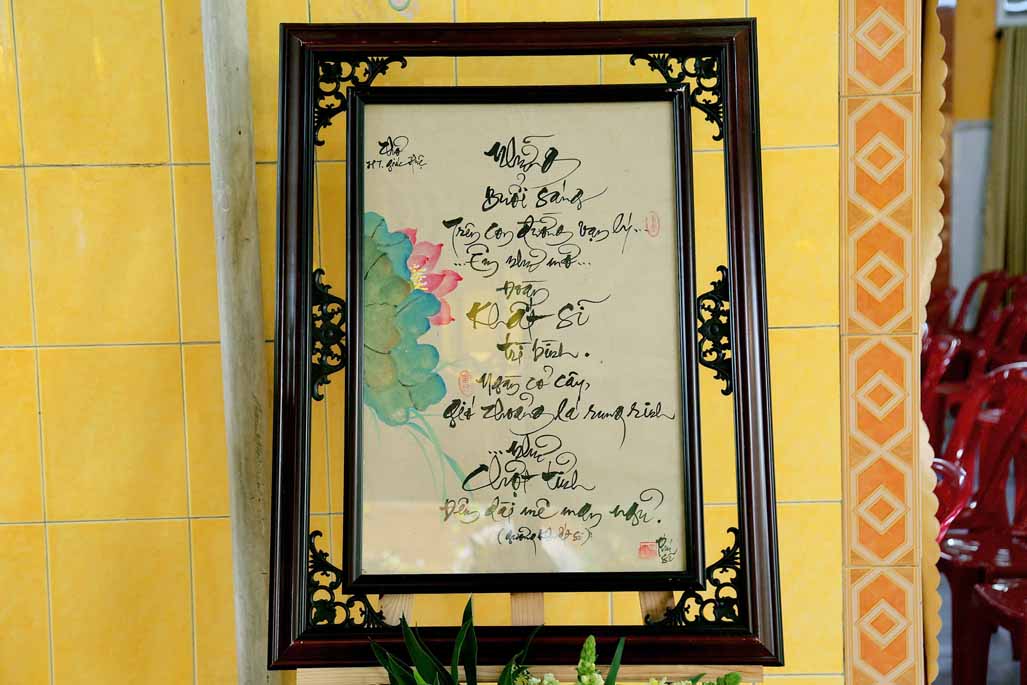 Thơ
HT. Giác Huệ
Những
Buổi sáng
Trên con đường vạn lý..
...Êm như mơ...
Đoàn
Khất Sĩ
trì bình.
Ngàn cỏ cây,
gió thoảng lá rung rinh
...như
Chợt tỉnh
Đêm dài mê man ngủ.